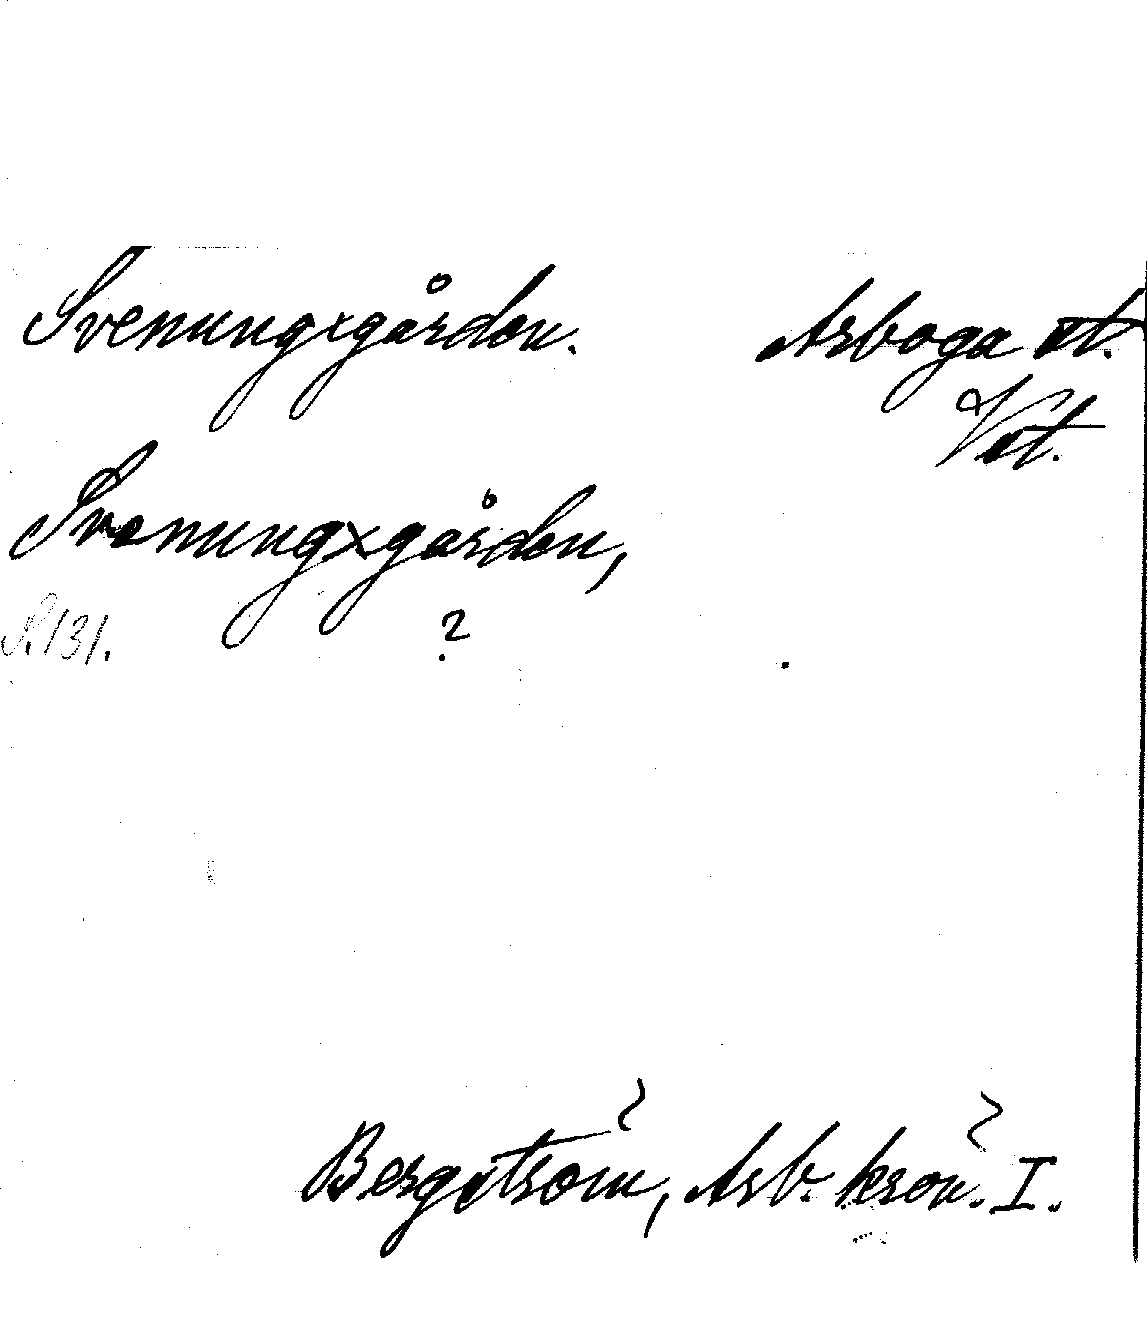 Svenungxgården. Arboga st.
Vst.
Svenungxgården,
S. 131. ?
Bergström, Arb. krön. I.